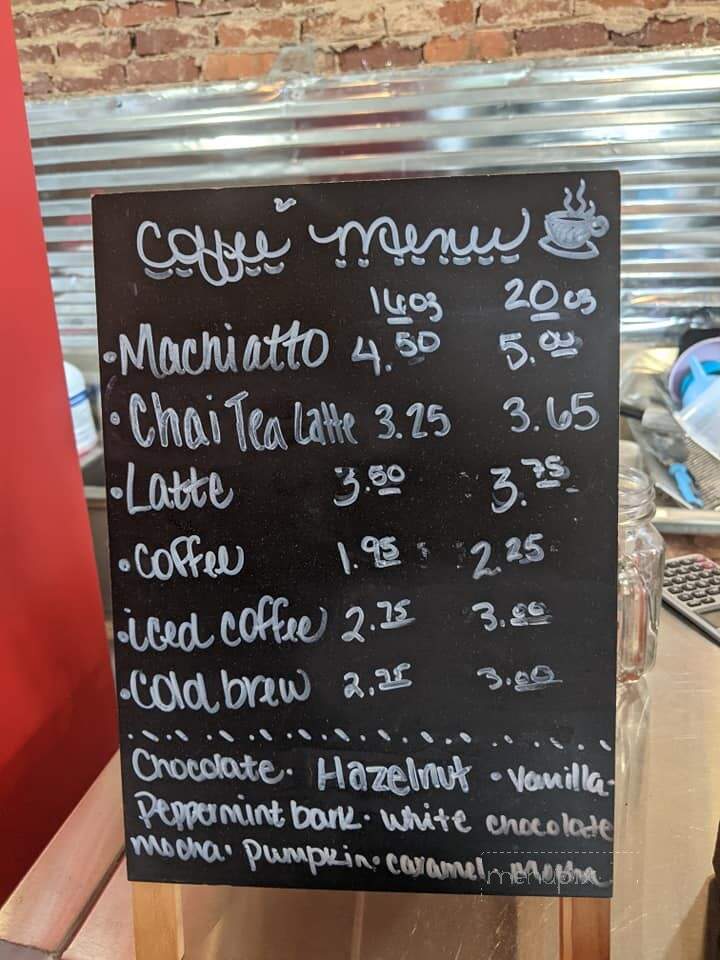 Coffee Menu
16oz 20oz
• Machiatto 4.50 5.00
• Chai Tea Latte 3.25 3.65
• Latte 3.50 3.75
• coffee 1.95 2.25
• iced coffee 2.75 3.00
• cold brew 2.75 3.00
Chocolate • Hazelnut • vanilla •
Peppermint bark • white chocolate
mocha • pumpkin • caramel • Mocha
menupix